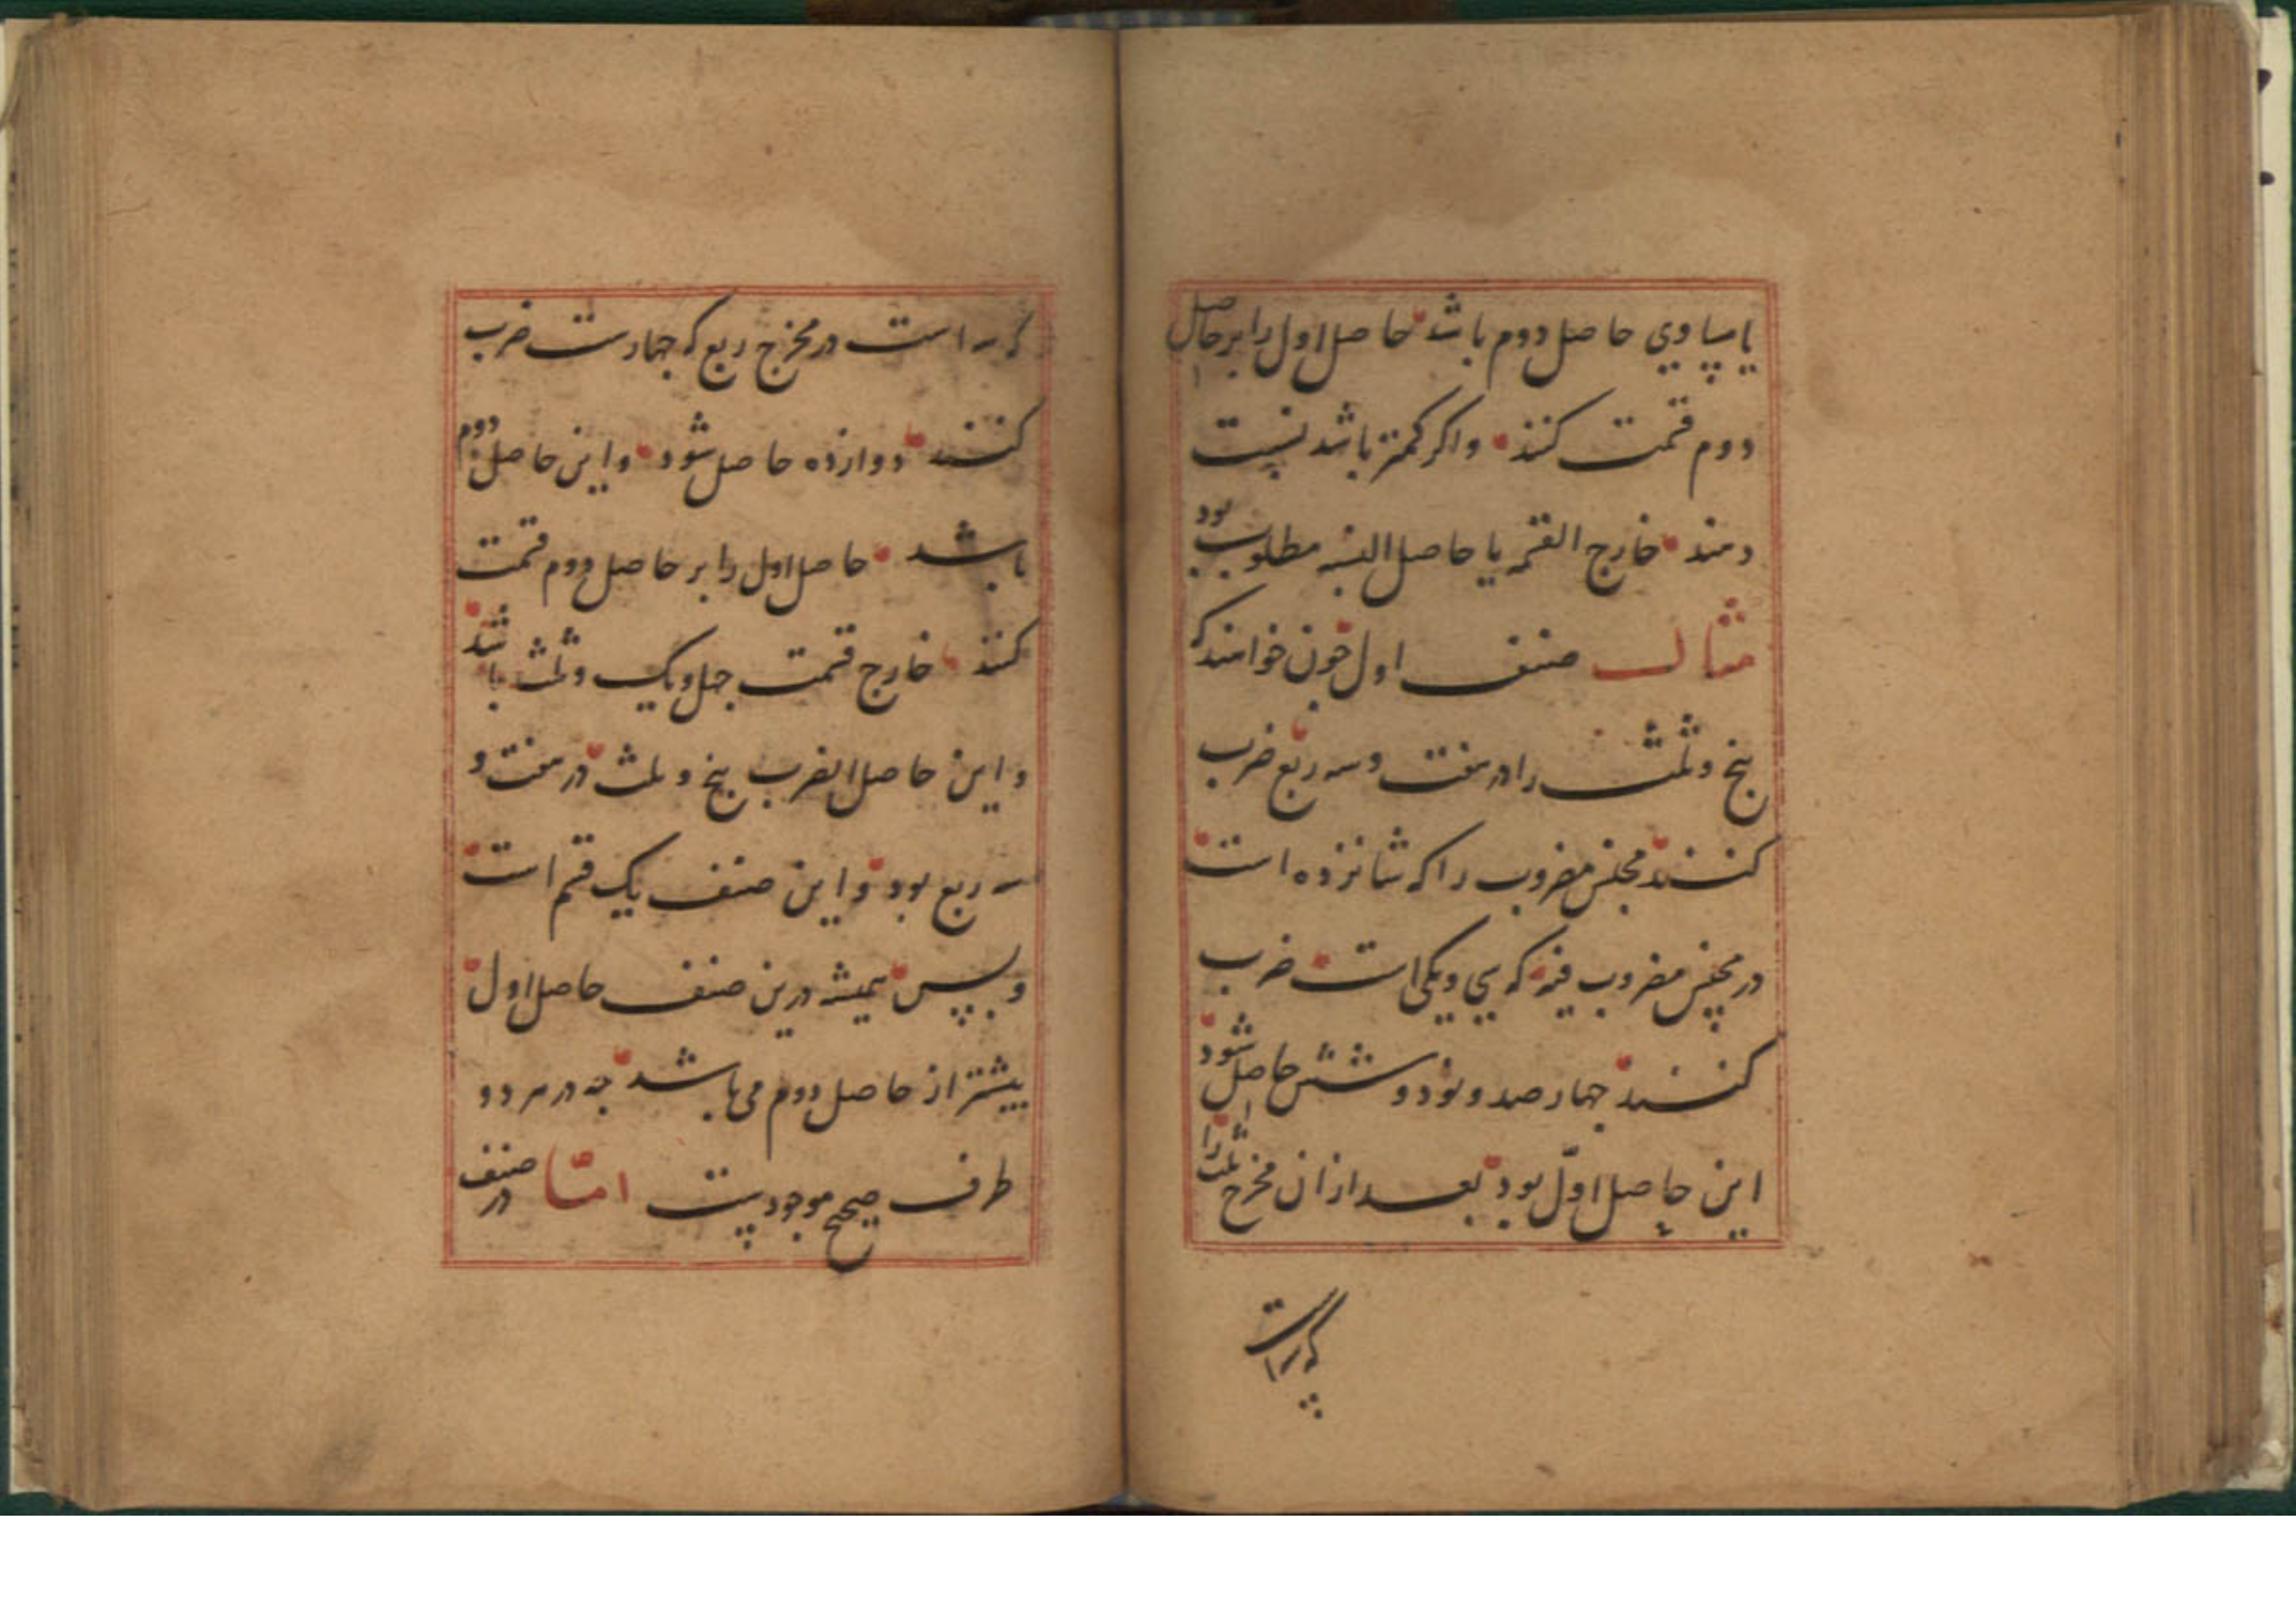 یا مساوی حاصل دوم باشد حاصل اول را بر حاصل
دوم قسمت کنند واکر کمتر باشد نسبت
دهند خارج القسمه یا حاصل النسبه مطلوب بود
مثال صنف اول چون خواهند که
پنج و ثلث را در هفت و سه ربع ضرب
کنند مجنس مضروب را که شانزده است
در مجنس مضروب فیه که سی و یکی است ضرب
کنند چهار صد و نود و شش حاصل شود
این حاصل اوّل بود بعد از ان مخرج ثلث را
که سه است
که سه است در مخرج ربع که چهارست ضرب
کنند دوازده حاصل شود و این حاصل دوم
باشد حاصل اول را بر حاصل دوم قسمت
کنند خارج قسمت چهل و یک و ثلث باشد
و این حاصل الضرب پنج و ثلث در هفت و
سه ربع بود و این صنف یک قسم است
و بس همیشه درین صنف حاصل اول
بیشتر از حاصل دوم می باشد چه در هر دو
طرف صحیح موجودست امّا در صنف